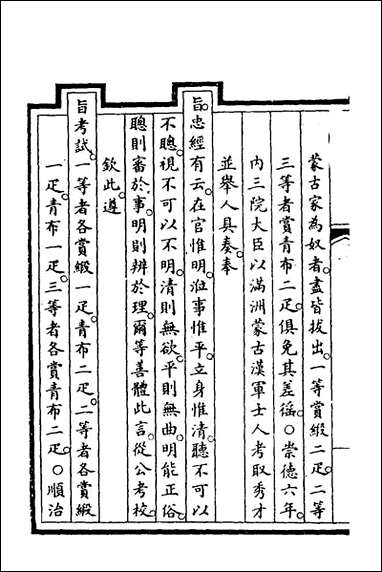 蒙古家為奴者。盡皆拔出。一等賞緞二疋。二等
三等者賞青布二疋。俱免其差徭。○崇德六年。
内三院大臣以滿洲蒙古漢軍士人考取秀才
並舉人具奏。奉
旨。忠經有云。在官惟明。涖事惟平。立身惟清。聽不可以
不聰。視不可以不明。清則無欲。平則無曲。明能正俗。
聰則審於事。明則辨於理。爾等善體此言。從公考校。
欽此。遵
旨考試。一等者各賞緞一疋。青布二疋。二等者各賞緞
一疋。青布一疋。三等者各賞青布二疋。○順治